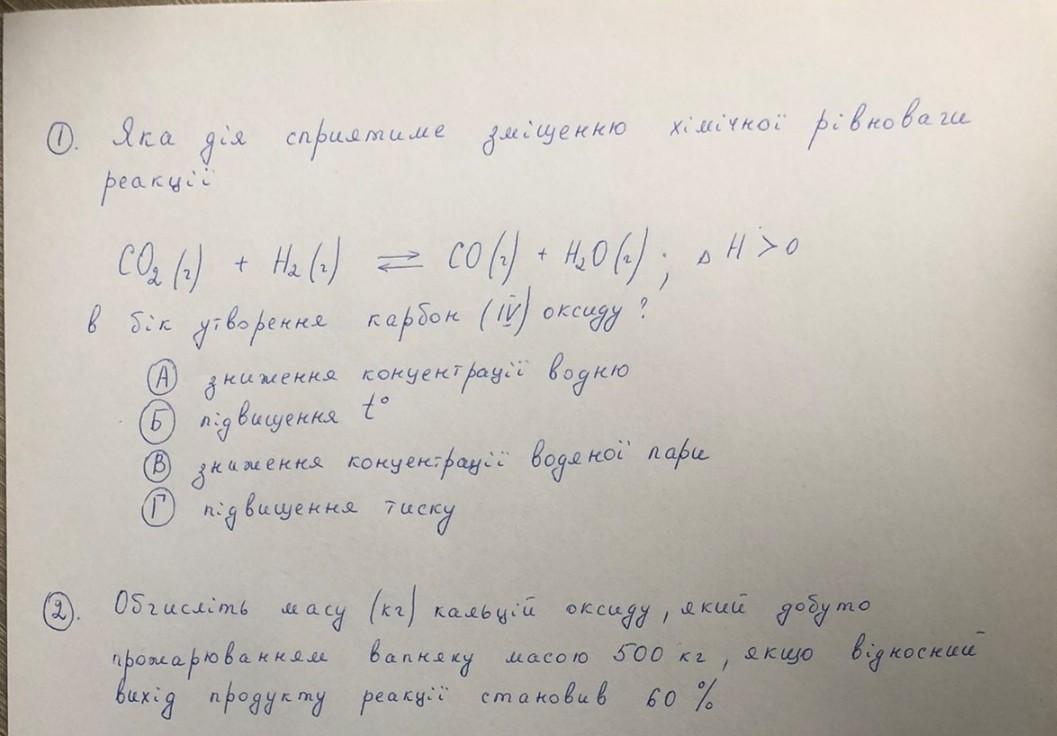 ①. Яка дія сприятиме зміщенню хімічної рівноваги
реакції
CO₂(г) + H₂(г) ⇄ CO(г) + H₂O(г); ΔH>0
в бік утворення карбон (IV) оксиду?
Ⓐ зниження концентрації водню
Ⓑ підвищення t°
Ⓒ зниження концентрації водяної пари
Ⓓ підвищення тиску
②. Обчисліть масу (кг) кальцій оксиду, який добуто
прожарюванням вапняку масою 500 кг, якщо відносний
вихід продукту реакції становив 60 %